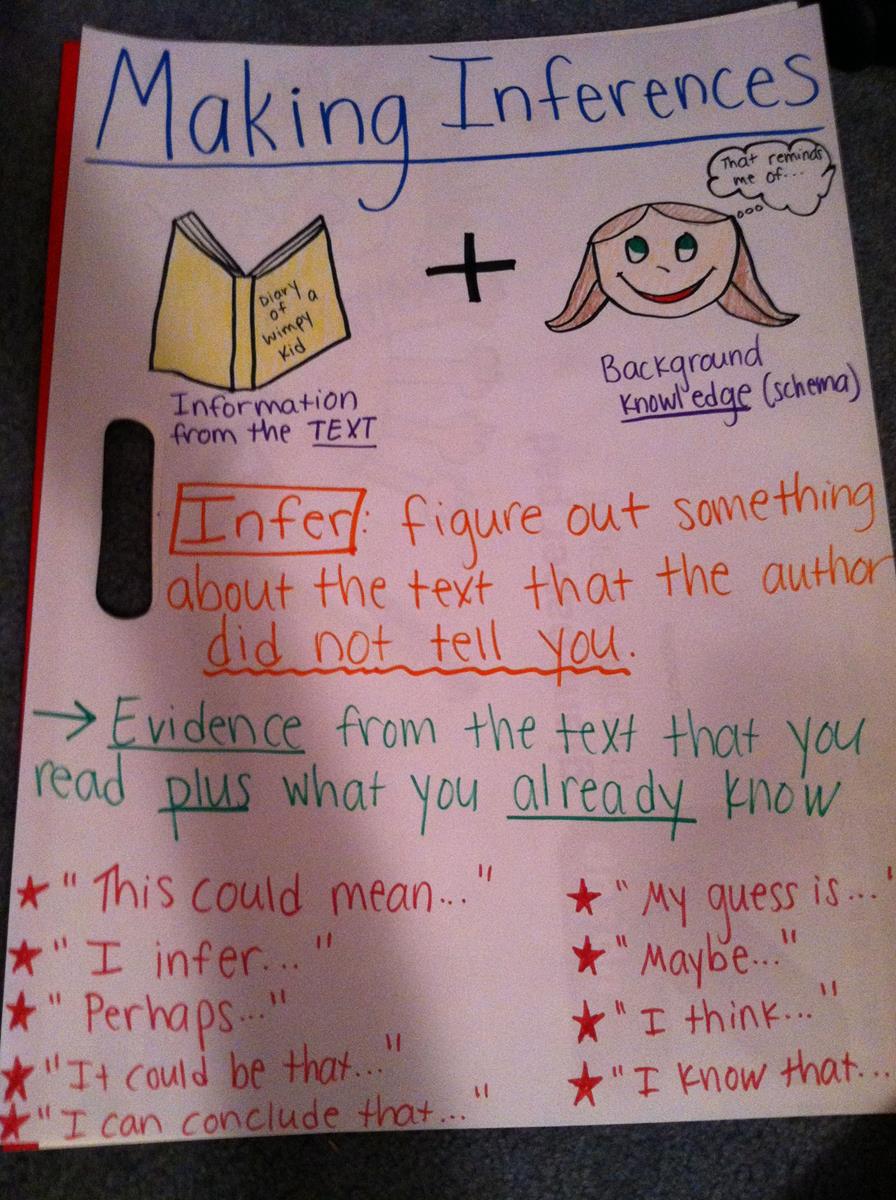 Making Inferences
That reminds
me of...
Diary
of a
Wimpy
Kid
+
Information
from the TEXT
Background
Knowledge (schema)
Infer: figure out something
about the text that the author
did not tell you.
→ Evidence from the text that you
read plus what you already know
★ "This could mean..."
★ "I infer..."
★ "Perhaps..."
★ "It could be that..."
★ "I can conclude that..."
★ "My guess is..."
★ "Maybe..."
★ "I think..."
★ "I know that...